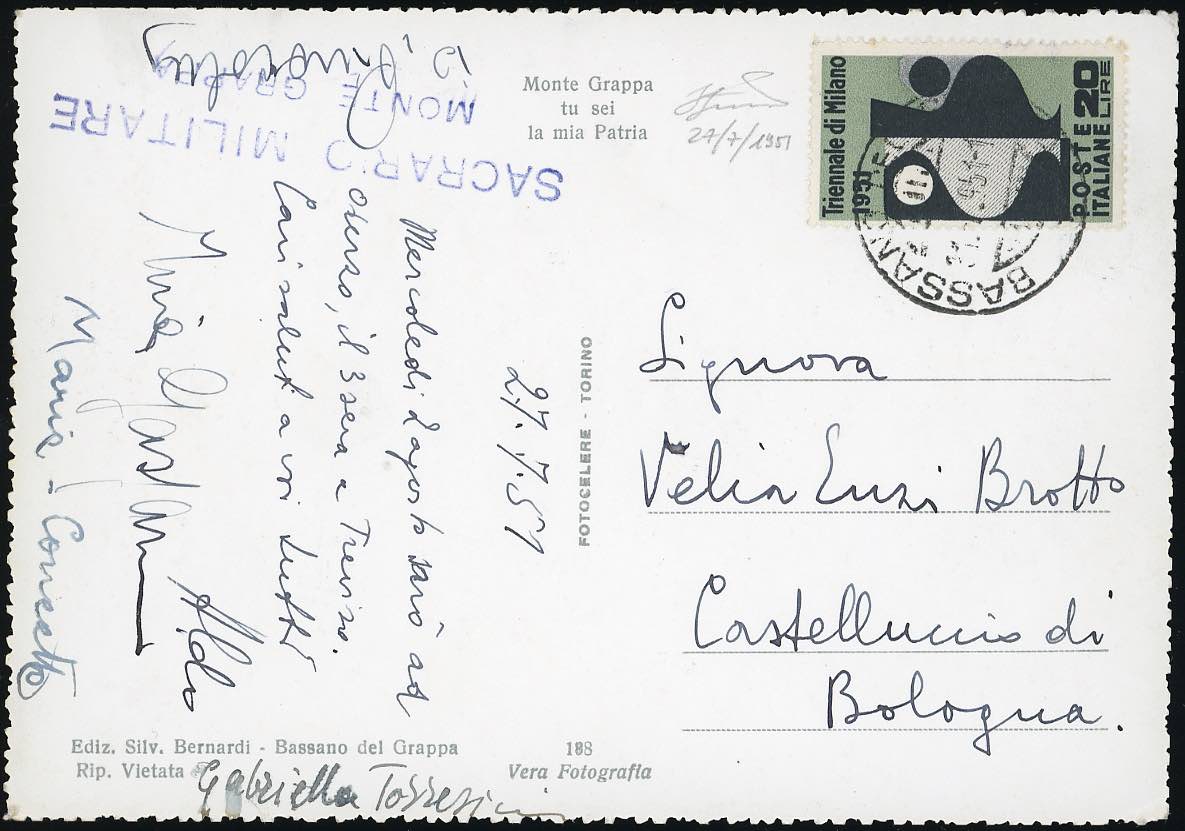 Monte Grappa
tu sei
la mia Patria
27/7/1951
SACRARIO MILITARE
MONTE GRAPPA
Triennale di Milano
1951
POSTE
ITALIANE
LIRE 20
BASSANO
27.7.51
Mercoledì 1 agosto sarò ad
il 3 sera a Treviso.
Cari saluti a voi tutti
Aldo
Maria
Signora
Velia
Brotto
Castelluccio di
Bologna.
FOTOCELERE - TORINO
Ediz. Silv. Bernardi - Bassano del Grappa
Rip. Vietata
188
Vera Fotografia
Gabriella